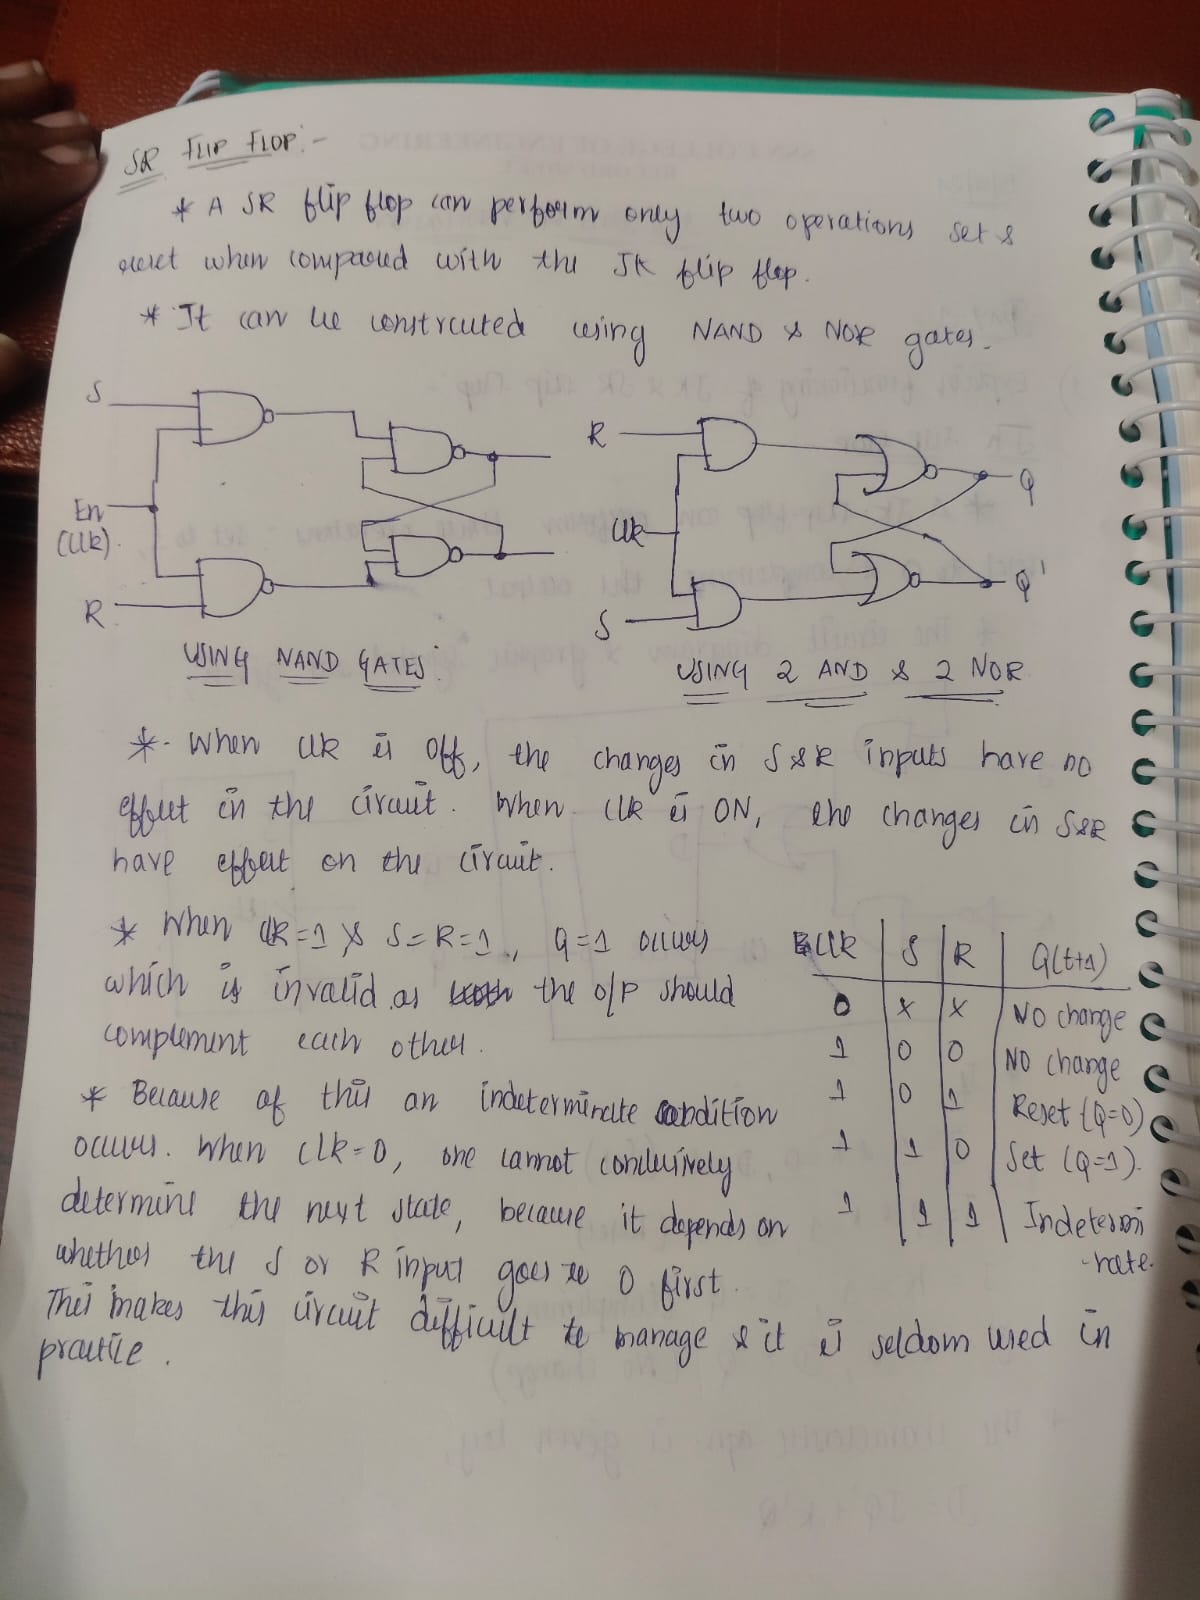 SR FLIP FLOP:-
* A SR flip flop can perform only two operations set &
reset when compared with the JK flip flop.
* It can be constructed using NAND & NOR gates.
S
En
(Clk).
R
USING NAND GATES:
R
Clk
S
Q
Q'
USING 2 AND & 2 NOR
*- When Clk is off, the changes in S & R inputs have no
effect in the circuit. When Clk is ON, the changes in S&R
have effect on the circuit.
* When Clk=1 & S=R=1, Q=1 occurs
which is invalid as the o/p should
complement each other.
* Because of this an indeterminate condition
occurs. When Clk=0, one cannot conclusively
determine the next state, because it depends on
whether the S or R input goes to 0 first.
This makes this circuit difficult to manage & it is seldom used in
practice.
Clk S R Q(t+1)
0 x x No change
1 0 0 No change
1 0 1 Reset (Q=0)
1 1 0 Set (Q=1).
1 1 1 Indetermi
-nate.